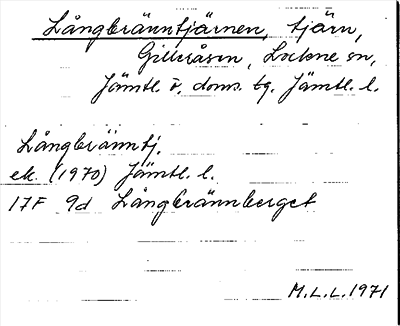 Långbränntjärnen, tjärn,
Gillråsen, Lockne sn,
Jämtl. ö. doms. tg. Jämtl. l.
Långbränntj.
ek. (1970) Jämtl. l.
17F 9d Långbrännberget
M.L.L. 1971